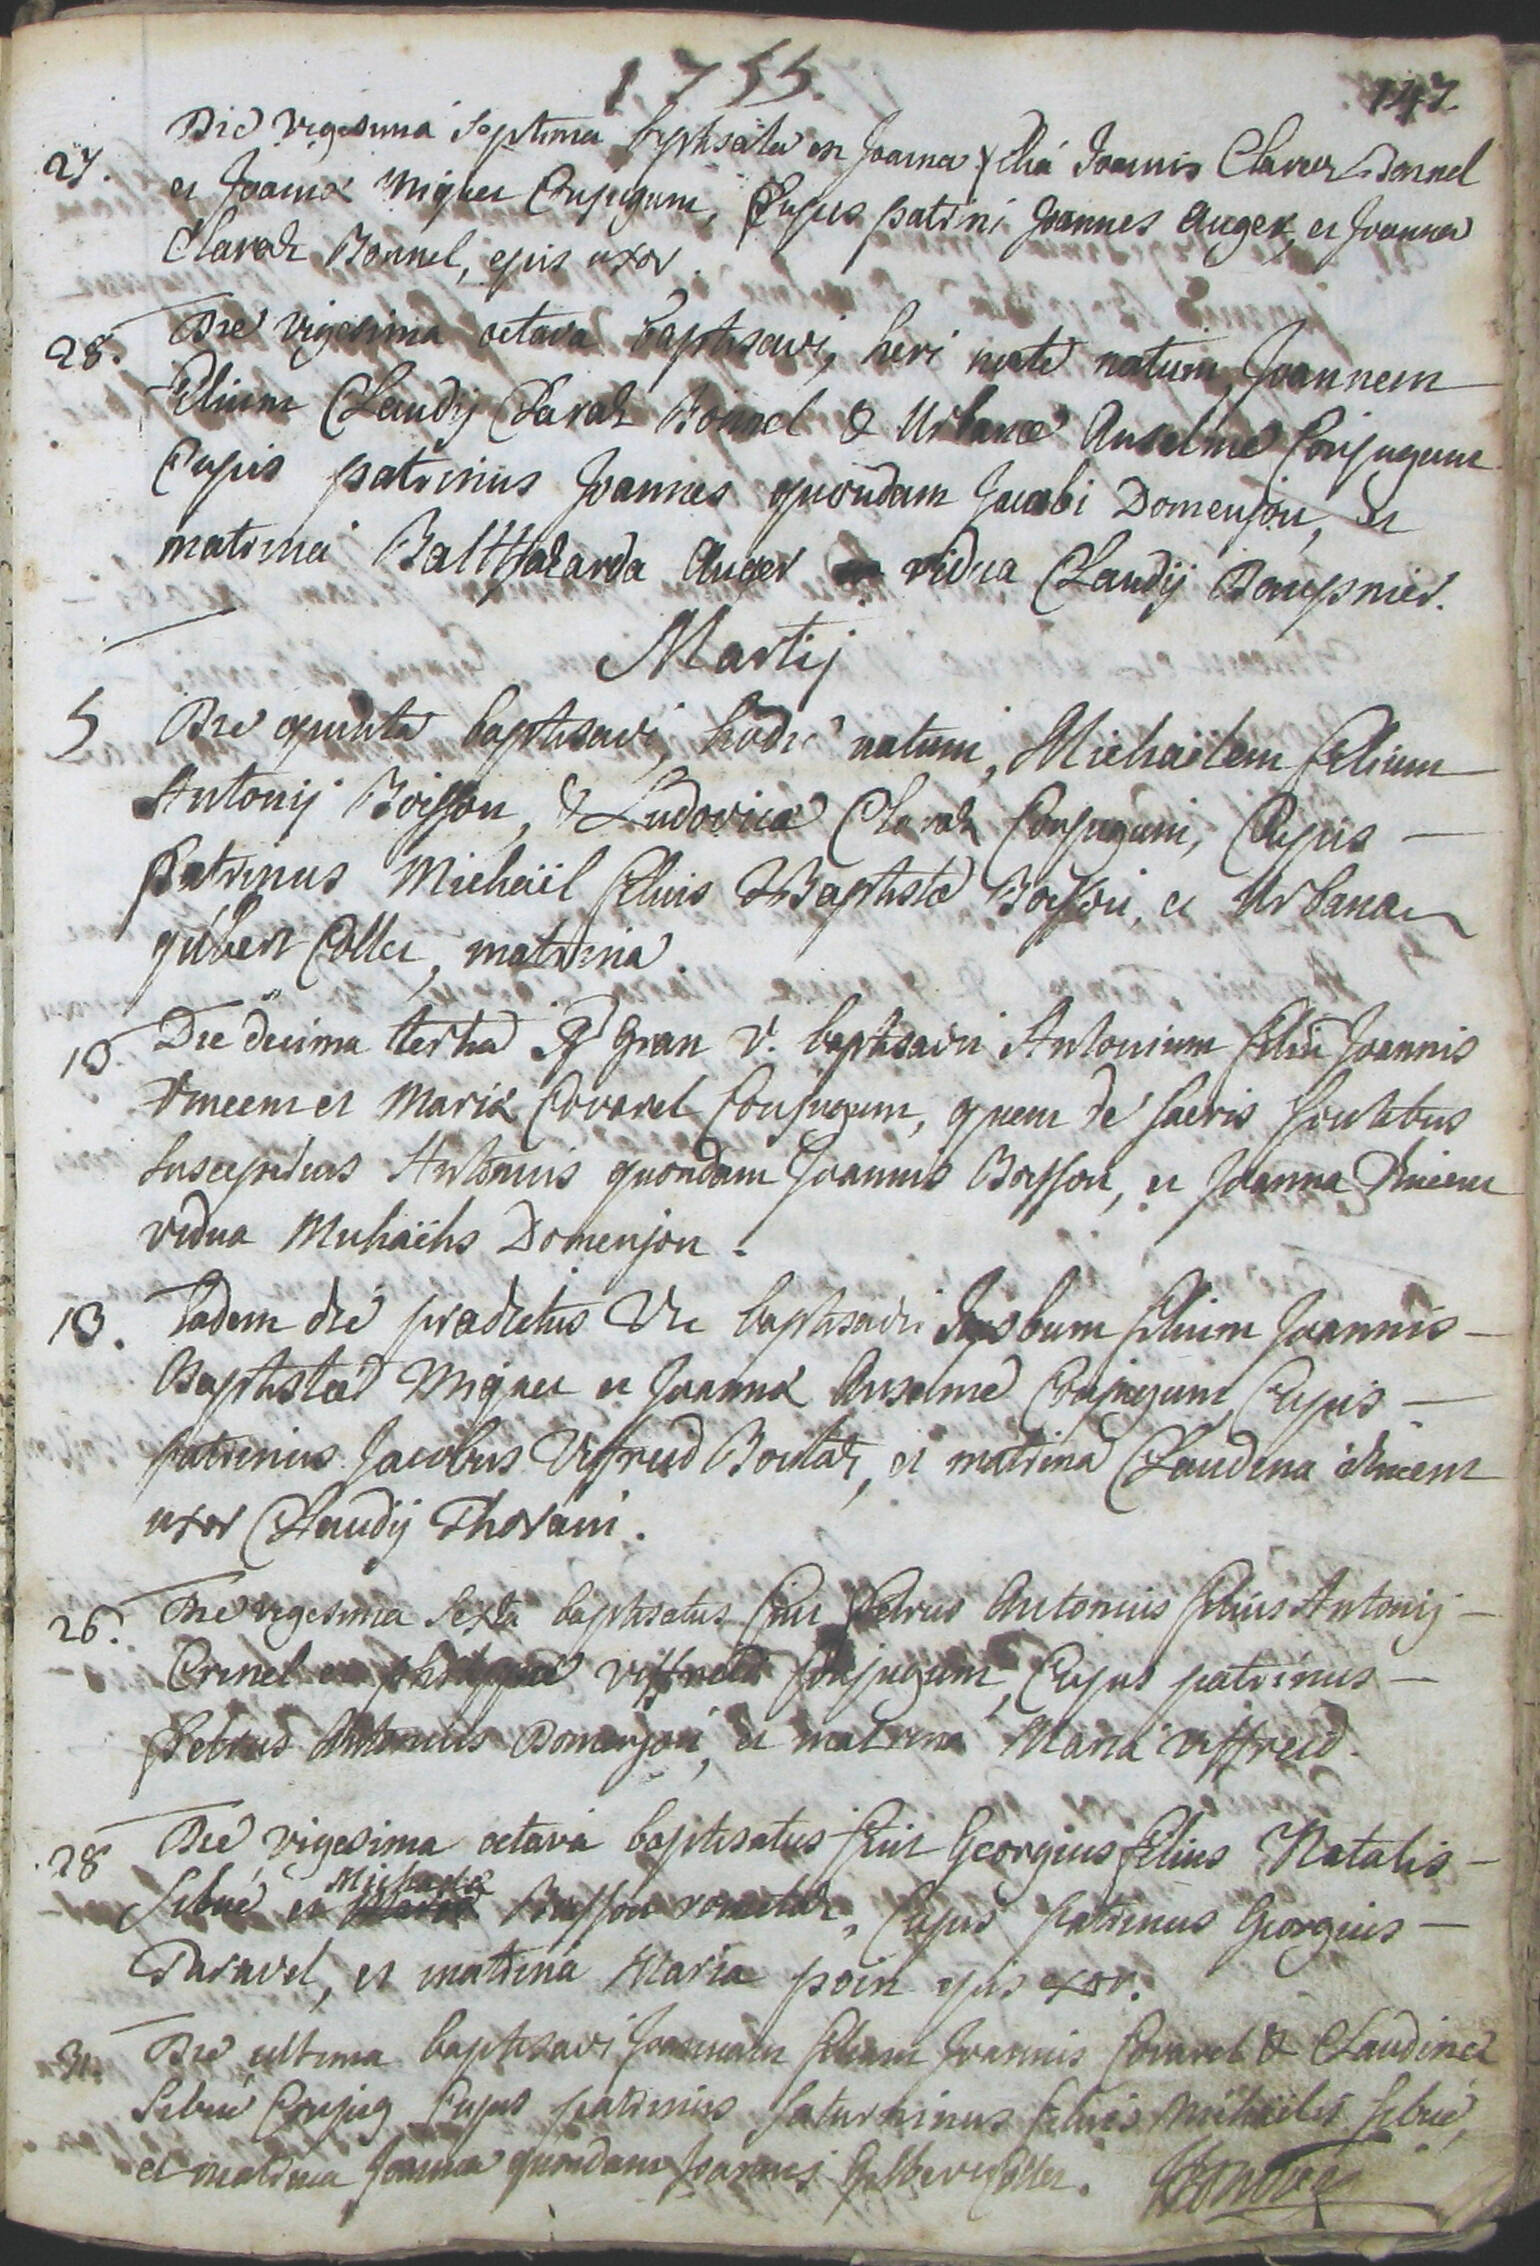 1755.
147.
27. Die vigesima septima baptisata est Joanna filia Joannis Claraz Bonnel
et Joannæ Miguet Conjugum, Cujus patrini Joannes Auger, et Joanna
Claraz Bonnel, ejus uxor.
28. Die vigesima octava baptisavi, heri nocte natum, Joannem
filium Claudij Claraz Bonnel & Urbanæ Anselme Conjugum
Cujus patrinus Joannes quondam Jacobi Domenjon, et
matrina Balthazarda Auger vidua Claudij
Martij
5 Die quinta baptisavi, hodie natum, Michaëlem filium
Antonij Boisson, & Ludovicæ Claraz Conjugum, Cujus
Patrinus Michaël filius Baptistæ Boisson, et Urbana
gilbert Collet, matrina.
13. Die decima tertia Rd Gran V. baptisavit Antonium filiu Joannis
Vincent et Mariæ Covarel Conjugum, quem de sacris fontibus
susceperunt Antonius quondam Joannis Boisson, et Joanna Vincent
vidua Michaëlis Domenjon.
13. Eadem die prædictus Vic baptisavit Jacobum filium Joannis
Baptistæ Miguet et Joannæ Anselme Conjugum, Cujus
patrinus Jacobus Viffreid Boutaz, et matrina Claudina Vincent
uxor Claudij Thorain.
26. Die vigesima sexta baptisatus fuit Petrus Antonius filius Antonij
Crinel et philippæ viffreid conjugum, Cujus patrinus
Petrus Antonius Domenjon, et matrina Maria viffreid.
28 Die vigesima octava baptisatus fuit Georgius filius Natalis
Sibué et Michaelæ Boisson rometaz, Cujus patrinus Georgius
Paravel, et matrina Maria poin ejus uxor.
31. Die ultima baptisavi Joannam filiam Joannis Covarel & Claudinæ
Sibué Conjug Cujus patrinus Saturninus filius Michaëlis Sibué,
et matrina Joanna quondam Joannis Gilbert Collet.